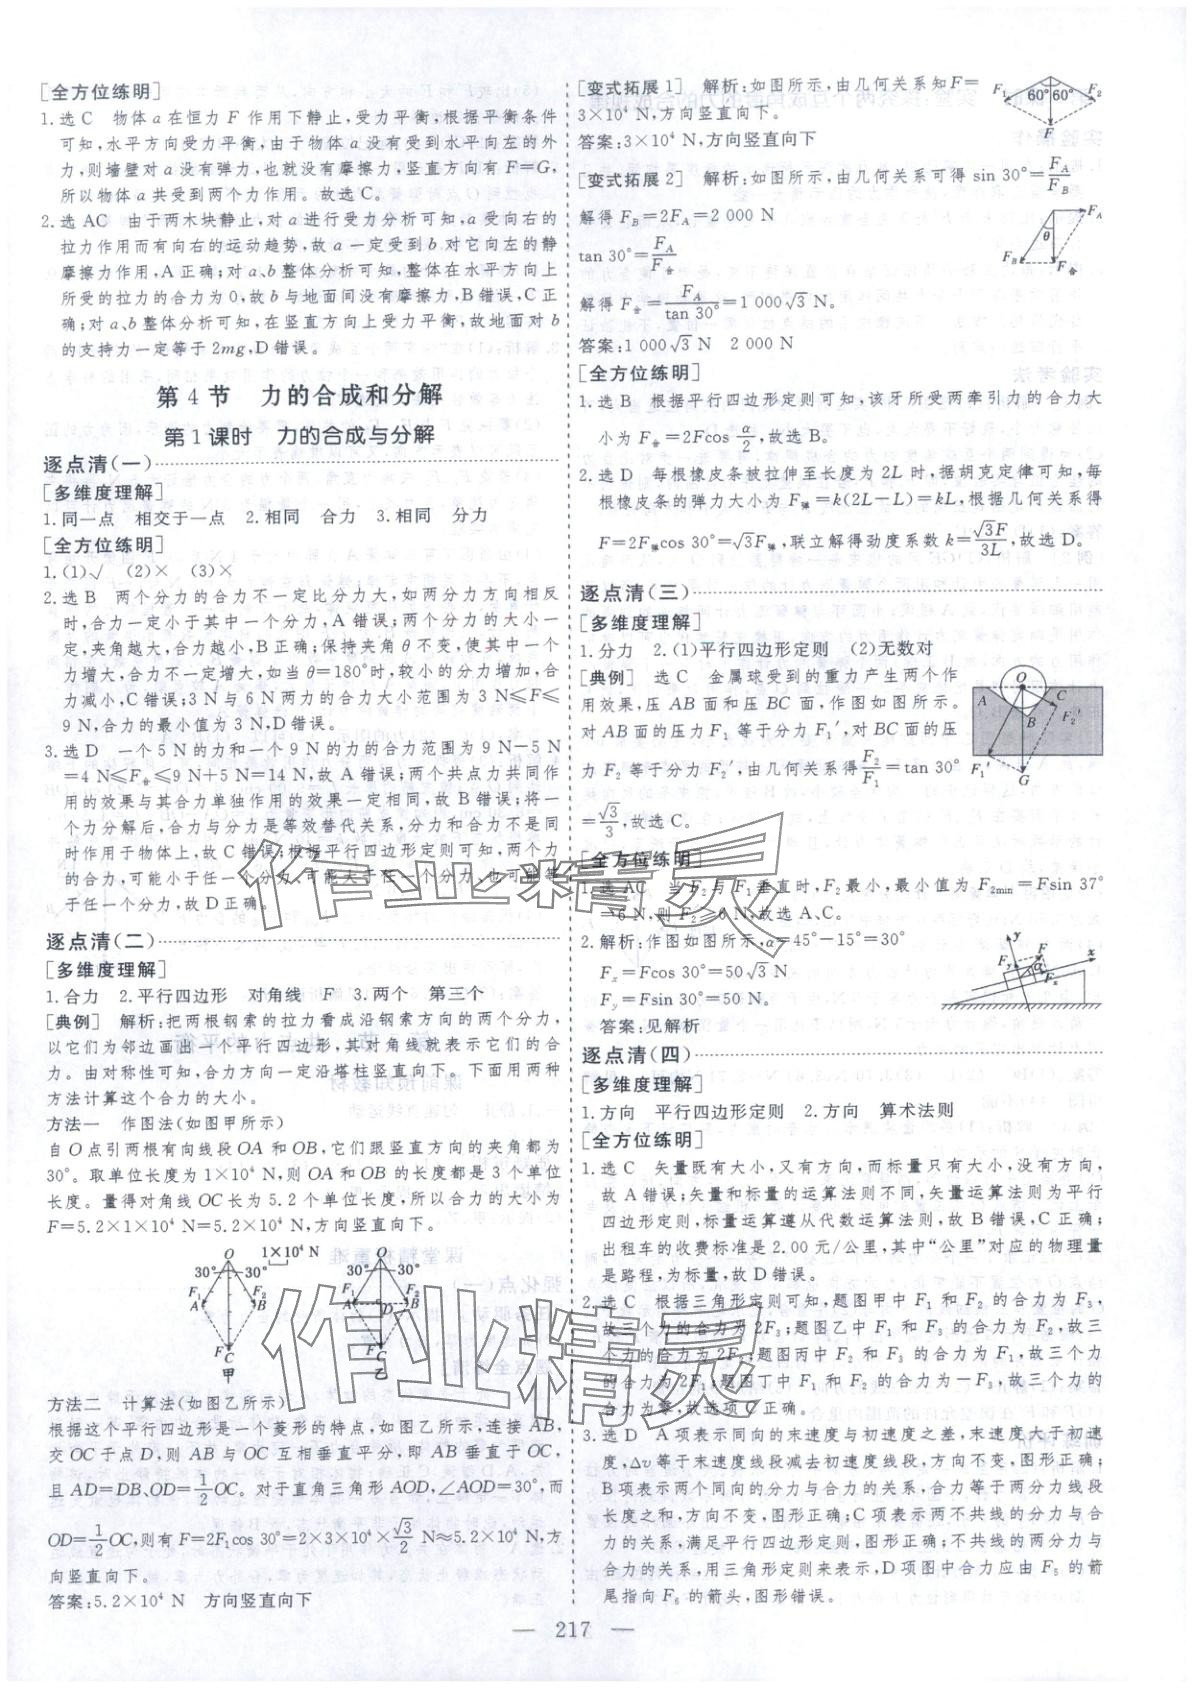 [全方位练明]
1.选C 物体a在恒力F作用下静止,受力平衡,根据平衡条件
可知,水平方向受力平衡,由于物体a没有受到水平向左的外
力,则墙壁对a没有弹力,也就没有摩擦力,竖直方向有F=G,
所以物体a共受到两个力作用。故选C。
2.选AC 由于两木块静止,对a进行受力分析可知,a受向右的
拉力作用而有向右的运动趋势,故a一定受到b对它向左的静
摩擦力作用,A正确;对a、b整体分析可知,整体在水平方向上
所受的拉力的合力为0,故b与地面间没有摩擦力,B错误,C正
确;对a、b整体分析可知,在竖直方向上受力平衡,故地面对b
的支持力一定等于2mg,D错误。
第4节 力的合成和分解
第1课时 力的合成与分解
逐点清(一)
[多维度理解]
1.同一点 相交于一点 2.相同 合力 3.相同 分力
[全方位练明]
1.(1)√ (2)× (3)×
2.选B 两个分力的合力不一定比分力大,如两分力方向相反
时,合力一定小于其中一个分力,A错误;两个分力的大小一
定,夹角越大,合力越小,B正确;保持夹角θ不变,使其中一个
力增大,合力不一定增大,如当θ=180°时,较小的分力增加,合
力减小,C错误;3 N与6 N两力的合力大小范围为3 N≤F≤
9 N,合力的最小值为3 N,D错误。
3.选D 一个5 N的力和一个9 N的力的合力范围为9 N-5 N
=4 N≤F合≤9 N+5 N=14 N,故A错误;两个共点力共同作
用的效果与其合力单独作用的效果一定相同,故B错误;将一
个力分解后,合力与分力是等效替代关系,分力和合力不是同
时作用于物体上,故C错误;根据平行四边形定则可知,两个力
的合力,可能小于任一个分力,可能大于任一个分力,也可能等
于任一个分力,故D正确。
逐点清(二)
[多维度理解]
1.合力 2.平行四边形 对角线 F 3.两个 第三个
[典例] 解析:把两根钢索的拉力看成沿钢索方向的两个分力,
以它们为邻边画出一个平行四边形,其对角线就表示它们的合
力。由对称性可知,合力方向一定沿塔柱竖直向下。下面用两种
方法计算这个合力的大小。
方法一 作图法(如图甲所示)
自O点引两根有向线段OA和OB,它们跟竖直方向的夹角都为
30°。取单位长度为1×10⁴ N,则OA和OB的长度都是3个单位
长度。量得对角线OC长为5.2个单位长度,所以合力的大小为
F=5.2×1×10⁴ N=5.2×10⁴ N,方向竖直向下。
O 1×10⁴ N O
30° 30° 30° 30°
F₁ F₂ F₁ F₂
A B A D B
F C F C
甲 乙
方法二 计算法(如图乙所示)
根据这个平行四边形是一个菱形的特点,如图乙所示,连接AB,
交OC于点D,则AB与OC互相垂直平分,即AB垂直于OC,
且AD=DB、OD=1/2 OC。对于直角三角形AOD,∠AOD=30°,而
OD=1/2 OC,则有F=2F₁cos 30°=2×3×10⁴×√3/2 N≈5.2×10⁴ N,方
向竖直向下。
答案:5.2×10⁴ N 方向竖直向下
[变式拓展1] 解析:如图所示,由几何关系知F=
3×10⁴ N,方向竖直向下。
答案:3×10⁴ N,方向竖直向下
F₁ 60° 60° F₂
F
[变式拓展2] 解析:如图所示,由几何关系可得sin 30°=F_A/F_B
解得F_B=2F_A=2 000 N
tan 30°=F_A/F合
解得F合=F_A/tan 30°=1 000√3 N。
答案:1 000√3 N 2 000 N
F_A
θ
F_B F合
[全方位练明]
1.选B 根据平行四边形定则可知,该牙所受两牵引力的合力大
小为F合=2Fcos α/2,故选B。
2.选D 每根橡皮条被拉伸至长度为2L时,据胡克定律可知,每
根橡皮条的弹力大小为F弹=k(2L-L)=kL,根据几何关系得
F=2F弹cos 30°=√3F弹,联立解得劲度系数k=√3F/3L,故选D。
逐点清(三)
[多维度理解]
1.分力 2.(1)平行四边形定则 (2)无数对
[典例] 选C 金属球受到的重力产生两个作
用效果,压AB面和压BC面,作图如图所示。
对AB面的压力F₁等于分力F₁′,对BC面的压
力F₂等于分力F₂′,由几何关系得F₂/F₁=tan 30°
=√3/3,故选C。
O
A C
B F₂′
F₁′ G
[全方位练明]
1.选AC 当F₂与F₁垂直时,F₂最小,最小值为F₂min=Fsin 37°
=6 N,则F₂≥6 N,故选A、C。
2.解析:作图如图所示,α=45°-15°=30°
Fx=Fcos 30°=50√3 N
Fy=Fsin 30°=50 N。
答案:见解析
y F x
Fy α Fx
逐点清(四)
[多维度理解]
1.方向 平行四边形定则 2.方向 算术法则
[全方位练明]
1.选C 矢量既有大小,又有方向,而标量只有大小,没有方向,
故A错误;矢量和标量的运算法则不同,矢量运算法则为平行
四边形定则,标量运算遵从代数运算法则,故B错误,C正确;
出租车的收费标准是2.00元/公里,其中“公里”对应的物理量
是路程,为标量,故D错误。
2.选C 根据三角形定则可知,题图甲中F₁和F₂的合力为F₃,
故三个力的合力为2F₃;题图乙中F₁和F₃的合力为F₂,故三
个力的合力为2F₂;题图丙中F₂和F₃的合力为F₁,故三个力
的合力为2F₁;题图丁中F₁和F₂的合力为-F₃,故三个力的
合力为零,故选项C正确。
3.选D A项表示同向的末速度与初速度之差,末速度大于初速
度,Δv等于末速度线段减去初速度线段,方向不变,图形正确;
B项表示两个同向的分力与合力的关系,合力等于两分力线段
长度之和,方向不变,图形正确;C项表示两不共线的分力与合
力的关系,满足平行四边形定则,图形正确;不共线的两分力与
合力的关系,用三角形定则来表示,D项图中合力应由F₅的箭
尾指向F₆的箭头,图形错误。
作业精灵
作业精灵
217